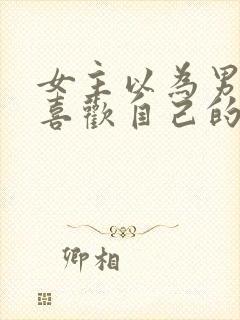 女主以為男
喜歡自己的
卿相